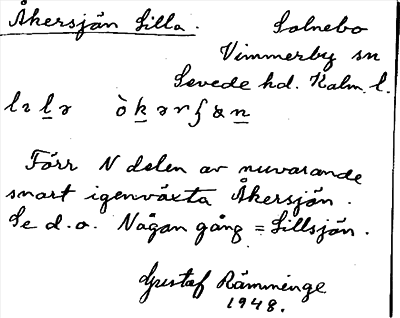 Åkersjön Lilla.
Solnebo
Vimmerby sn
Sevede hd. Kalm. l.
Förr N delen av nuvarande
snart igenväxta Åkersjön.
Se d.o. Någon gång = Lillsjön.
Gustaf Rämminge
1948.